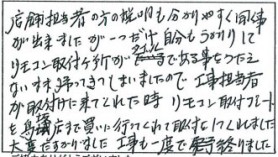 店舗担当者の方の説明も分かりやすく同様
が出来ましたが一つだけ自分もうっかりして
リモコン取付ヶ所が である事をつたえ
ないまま帰ってきてしまいましたので工事担当者
が取付けに来てくれた時 リモコン取付プレート
を 店まで買いに行ってくれて取付なしてくれました
大変たすかりました 工事も一度で 終りました